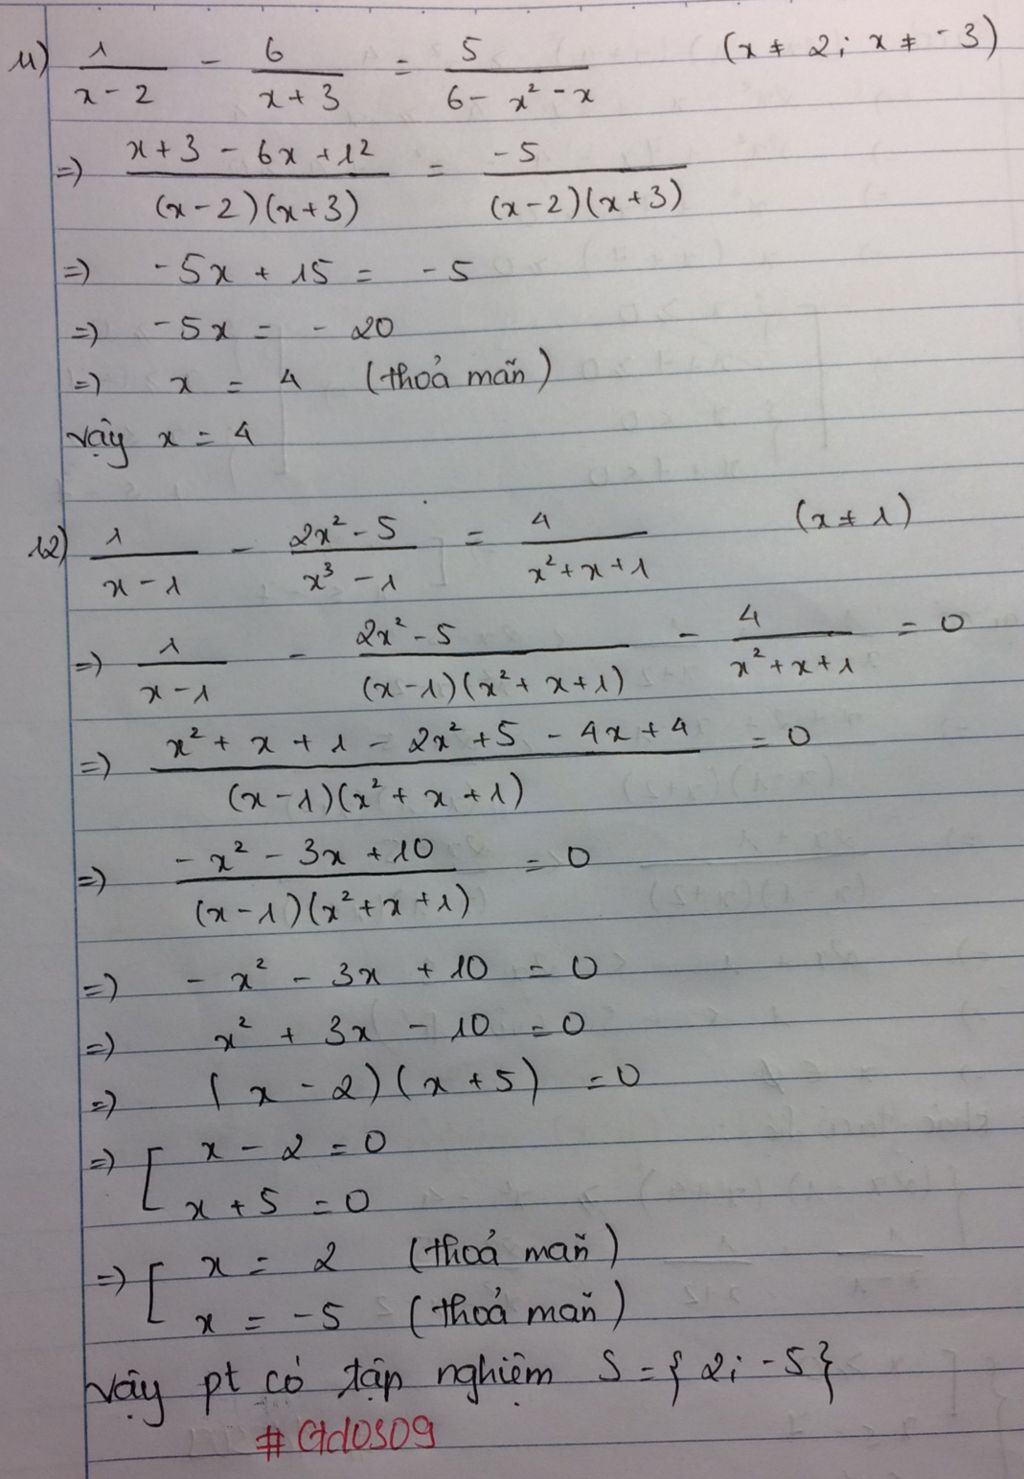 11) 1/(x-2) - 6/(x+3) = 5/(6-x²-x) (x ≠ 2; x ≠ -3)
=> (x+3-6x+12)/((x-2)(x+3)) = -5/((x-2)(x+3))
=> -5x + 15 = -5
=> -5x = - 20
=> x = 4 (thoả mãn)
vậy x = 4
12) 1/(x-1) - (2x²-5)/(x³-1) = 4/(x²+x+1) (x ≠ 1)
=> 1/(x-1) - (2x²-5)/((x-1)(x²+x+1)) - 4/(x²+x+1) = 0
=> (x²+x+1-2x²+5-4x+4)/((x-1)(x²+x+1)) = 0
=> (-x²-3x+10)/((x-1)(x²+x+1)) = 0
=> -x² - 3x + 10 = 0
=> x² + 3x - 10 = 0
=> (x-2)(x+5) = 0
=> [ x - 2 = 0
x + 5 = 0
=> [ x = 2 (thoả mãn)
x = -5 (thoả mãn)
vậy pt có tập nghiệm S = {2; -5}
#Gtd0309